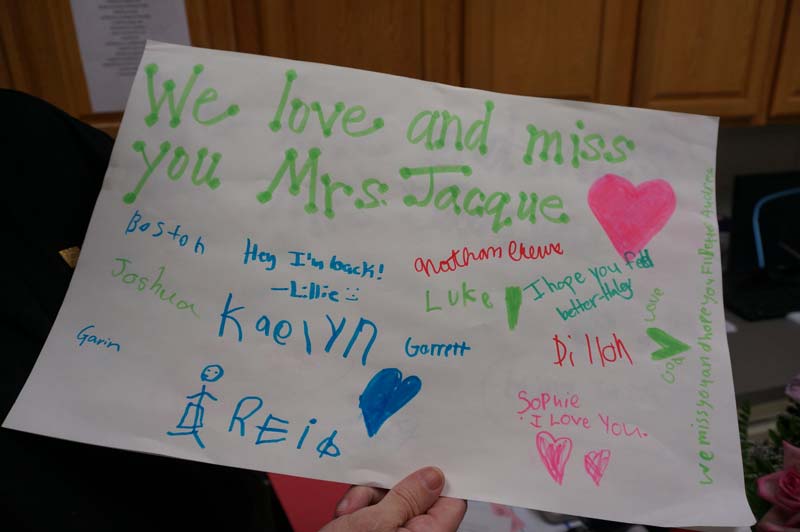 We love and miss
you Mrs. Jacque
Boston
Hey I'm back!
-Lillie
Nathan Crews
I hope you feel
better-Haley
Joshua
Luke
Kaelyn
Garrett
Dillon
Love
God
Gavin
REID
Sophie
I Love You.
we miss you and hope you Fill Bette Audrea